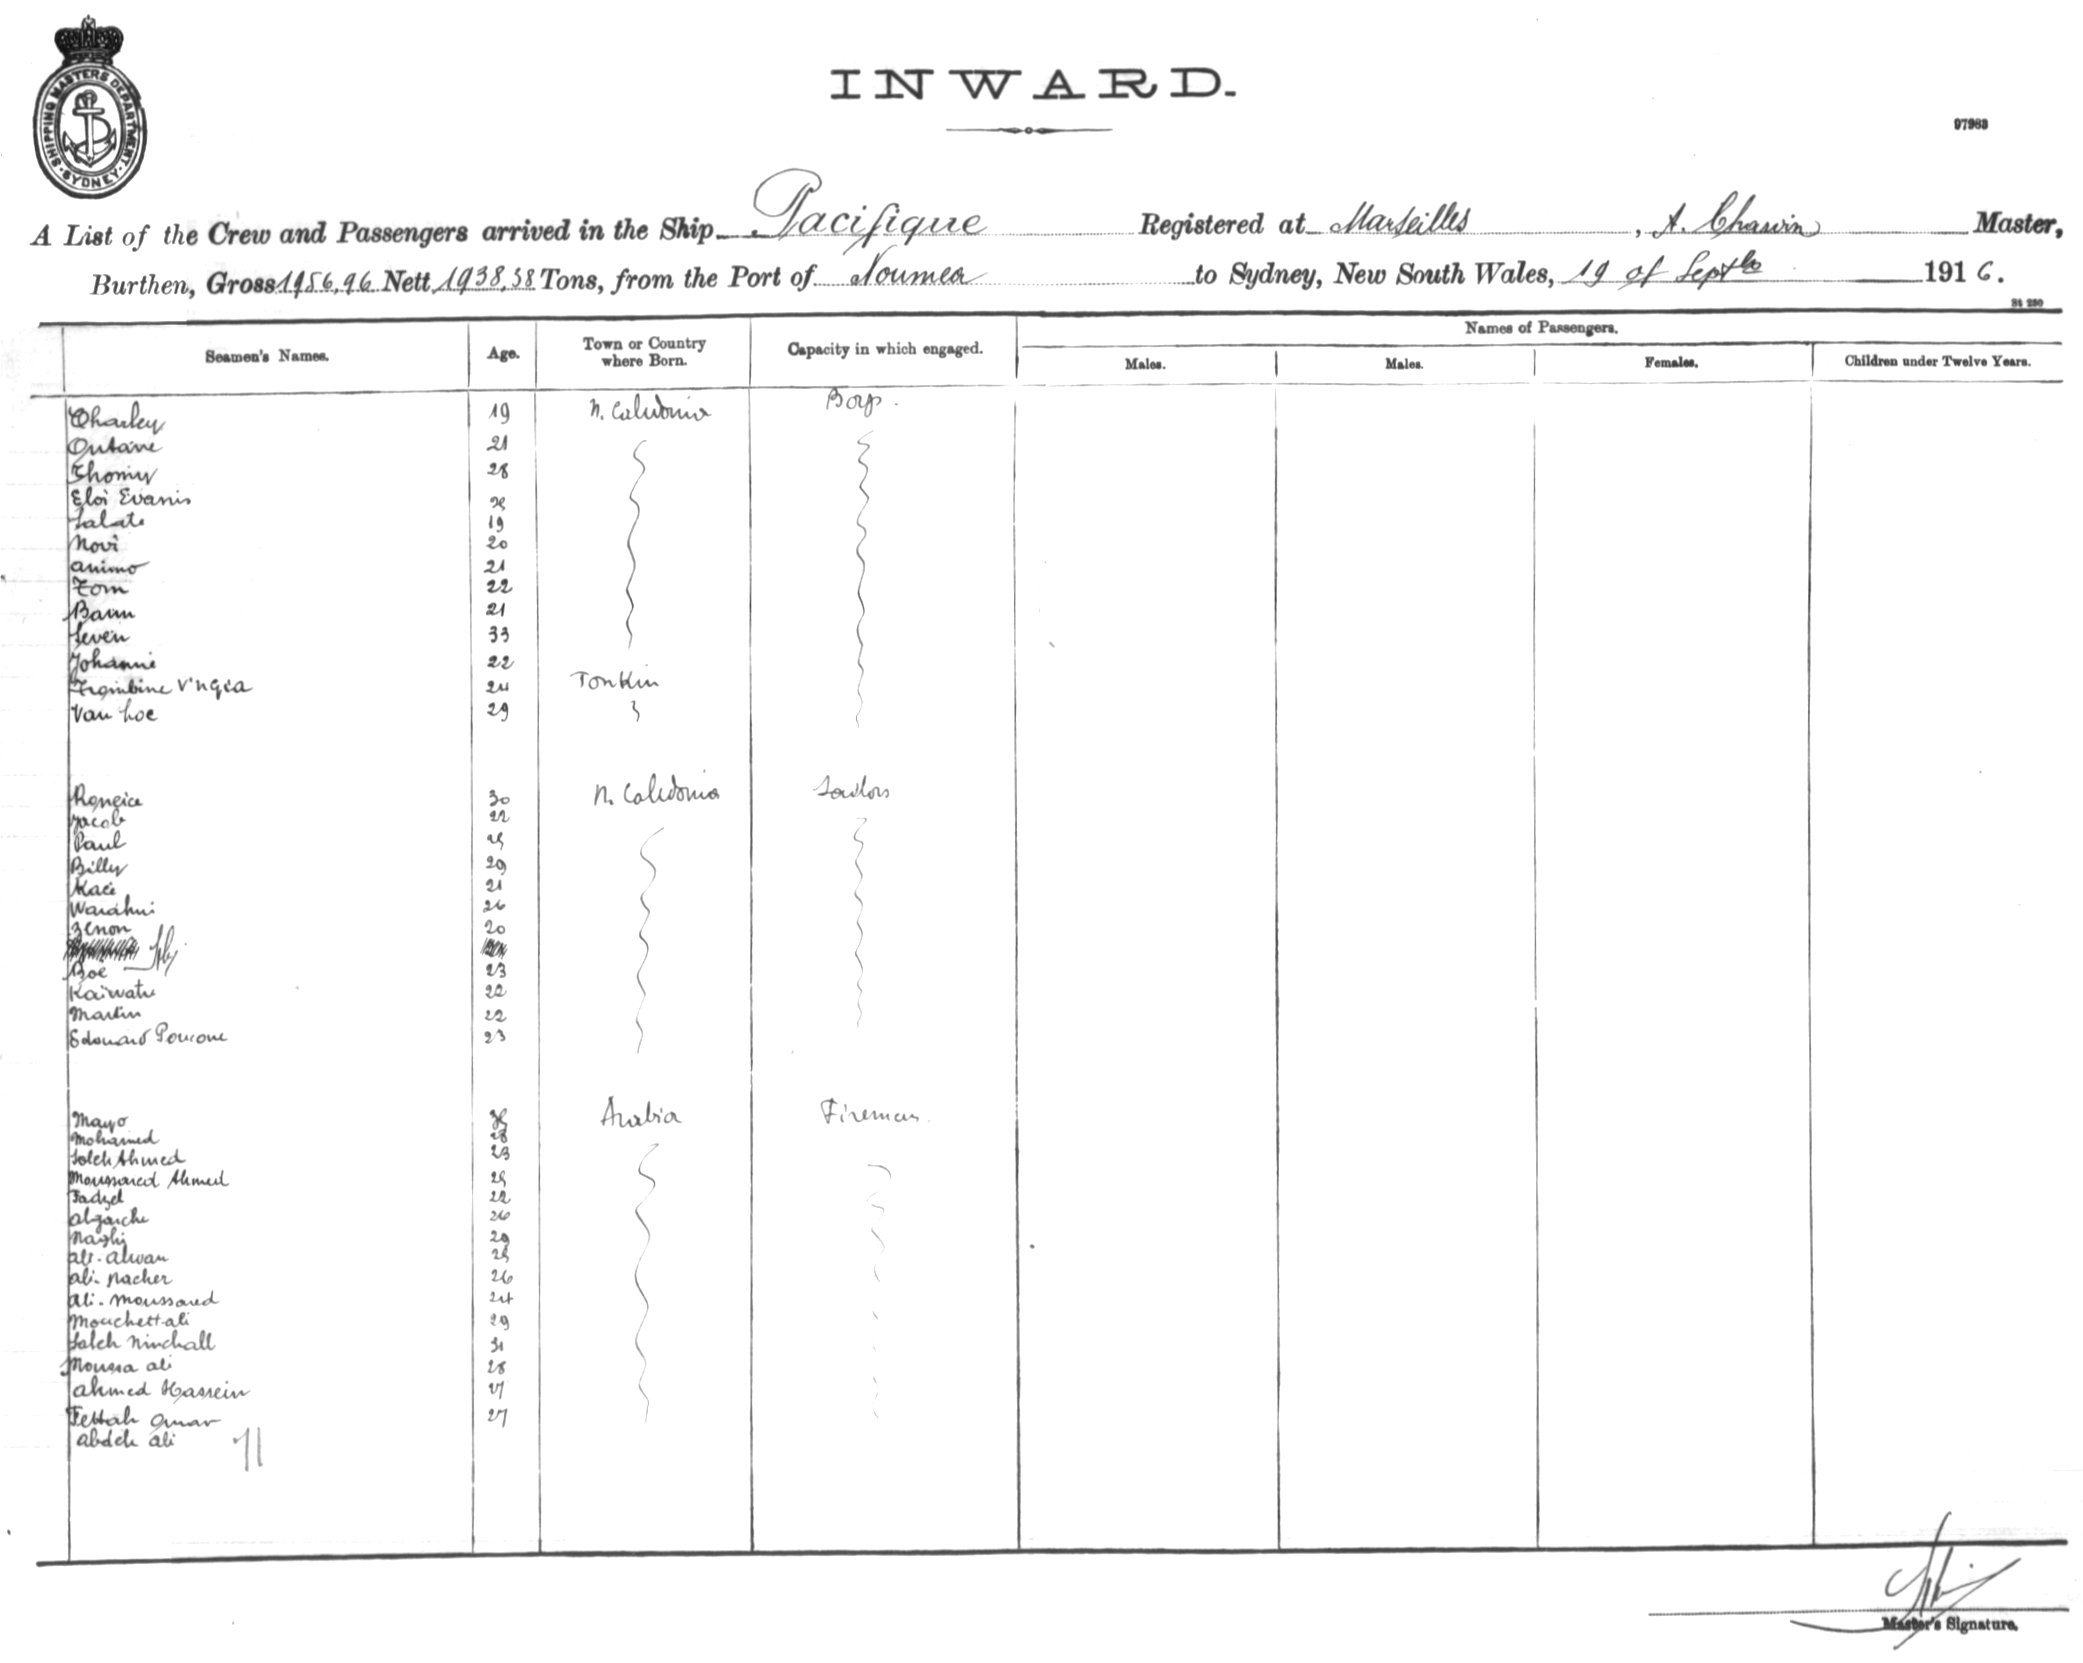 SHIPPING MASTERS DEPARTMENT · SYDNEY ·
INWARD.
97983
A List of the Crew and Passengers arrived in the Ship Pacifique Registered at Marseilles, A. Chauvin Master,
Burthen, Gross 1956,96 Nett 1938,38 Tons, from the Port of Noumea to Sydney, New South Wales, 19 of Septbe 1916.
St 250
Names of Passengers.
Seamen's Names. Age. Town or Country where Born. Capacity in which engaged. Males. Males. Females. Children under Twelve Years.
Charley 19 N. Caledonia Boys.
21
Thomy 28
Eloi Evanis
19
Novi 20
Animo 21
Tom 22
21
Seven 33
Johannie 22
24 Tonkin
Van hoe 29
30 N. Caledonia Sailors
Jacob 22
Paul 25
Billy 29
Kaci 21
26
Zenon 20
Boé 23
Kaïwatu 22
Martin 22
Edouard 23
Mayo Arabia Fireman.
Mohamed 28
Saleh Ahmed 23
Moussared Ahmed 25
Fadzel 22
26
Naghi 29
Ali-Alwan 25
Ali-Nacher 26
Ali-Moussared 24
Mouchett-ali 29
Saleh 31
Moussa ali 28
Ahmed Hassein 27
Fettah Omar 27
Abdeh Ali
Master's Signature.